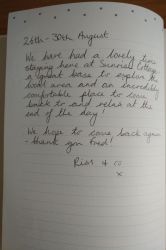 26th - 30th August
We have had a lovely time
staying here at Sunrise Cottage,
a great base to explore the
local area and an incredibly
comfortable place to come
back to and relax at the
end of the day!
We hope to come back again
- thank you
& co
x